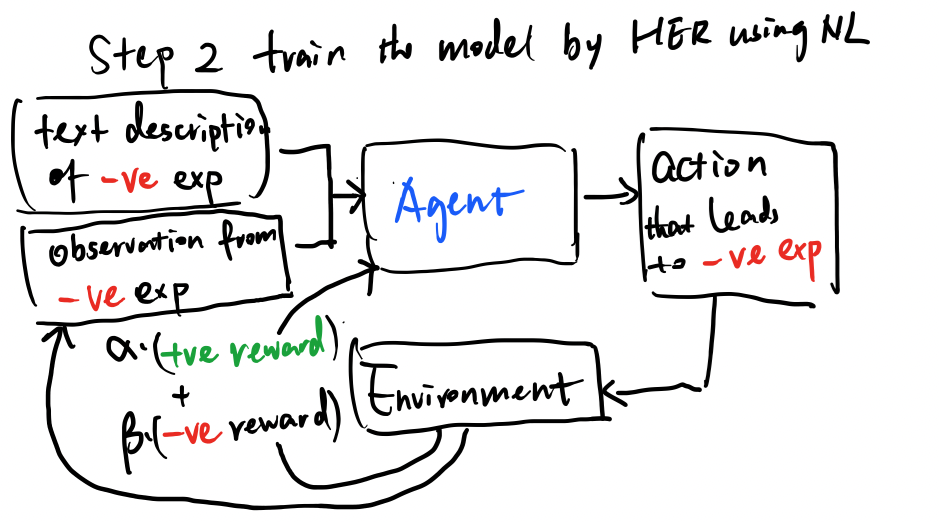 Step 2 train the model by HER using NL
text description
of -ve exp
observation from
-ve exp
Agent
action
that leads
to -ve exp
α·(+ve reward)
+
β·(-ve reward)
Environment